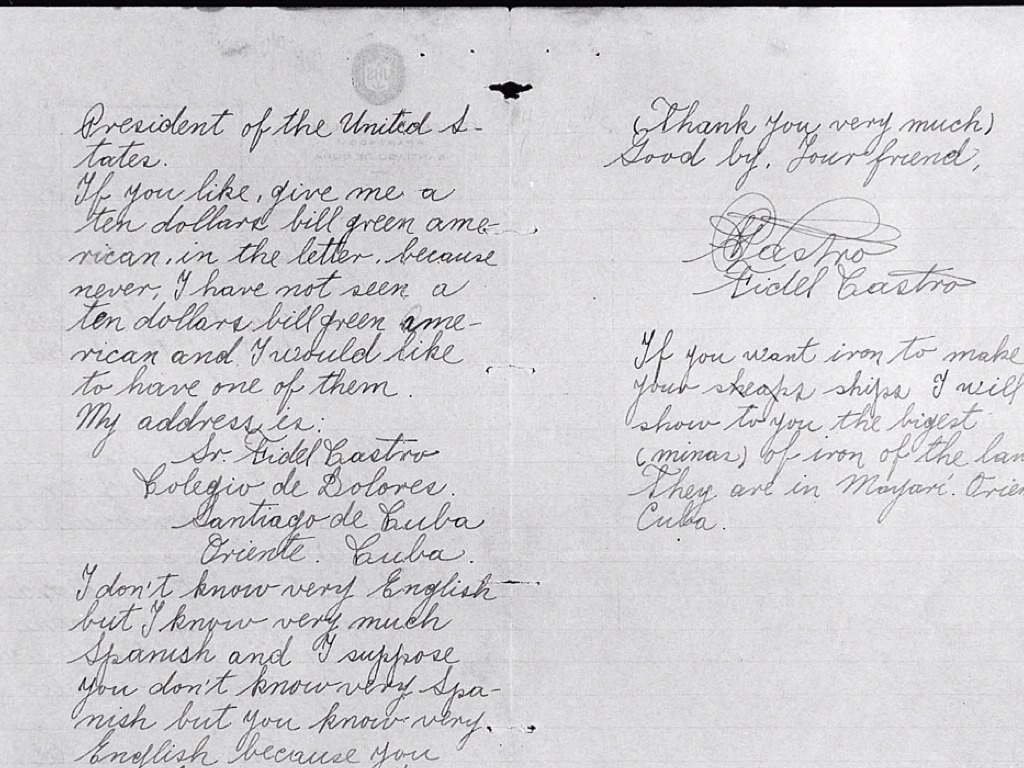 President of the United S-
tates.
If you like, give me a
ten dollars bill green ame-
rican, in the letter, because
never, I have not seen a
ten dollars bill green ame-
rican and I would like
to have one of them.
My address is:
Sr. Fidel Castro
Colegio de Dolores.
Santiago de Cuba
Oriente. Cuba.
I don't know very English
but I know very much
Spanish and I suppose
you don't know very Spa-
nish but you know very
English because you
(Thank you very much)
Good by. Your friend,
Castro
Fidel Castro
If you want iron to make
your sheaps ships I will
show to you the bigest
(minas) of iron of the lan
They are in Mayarí. Orien
Cuba.